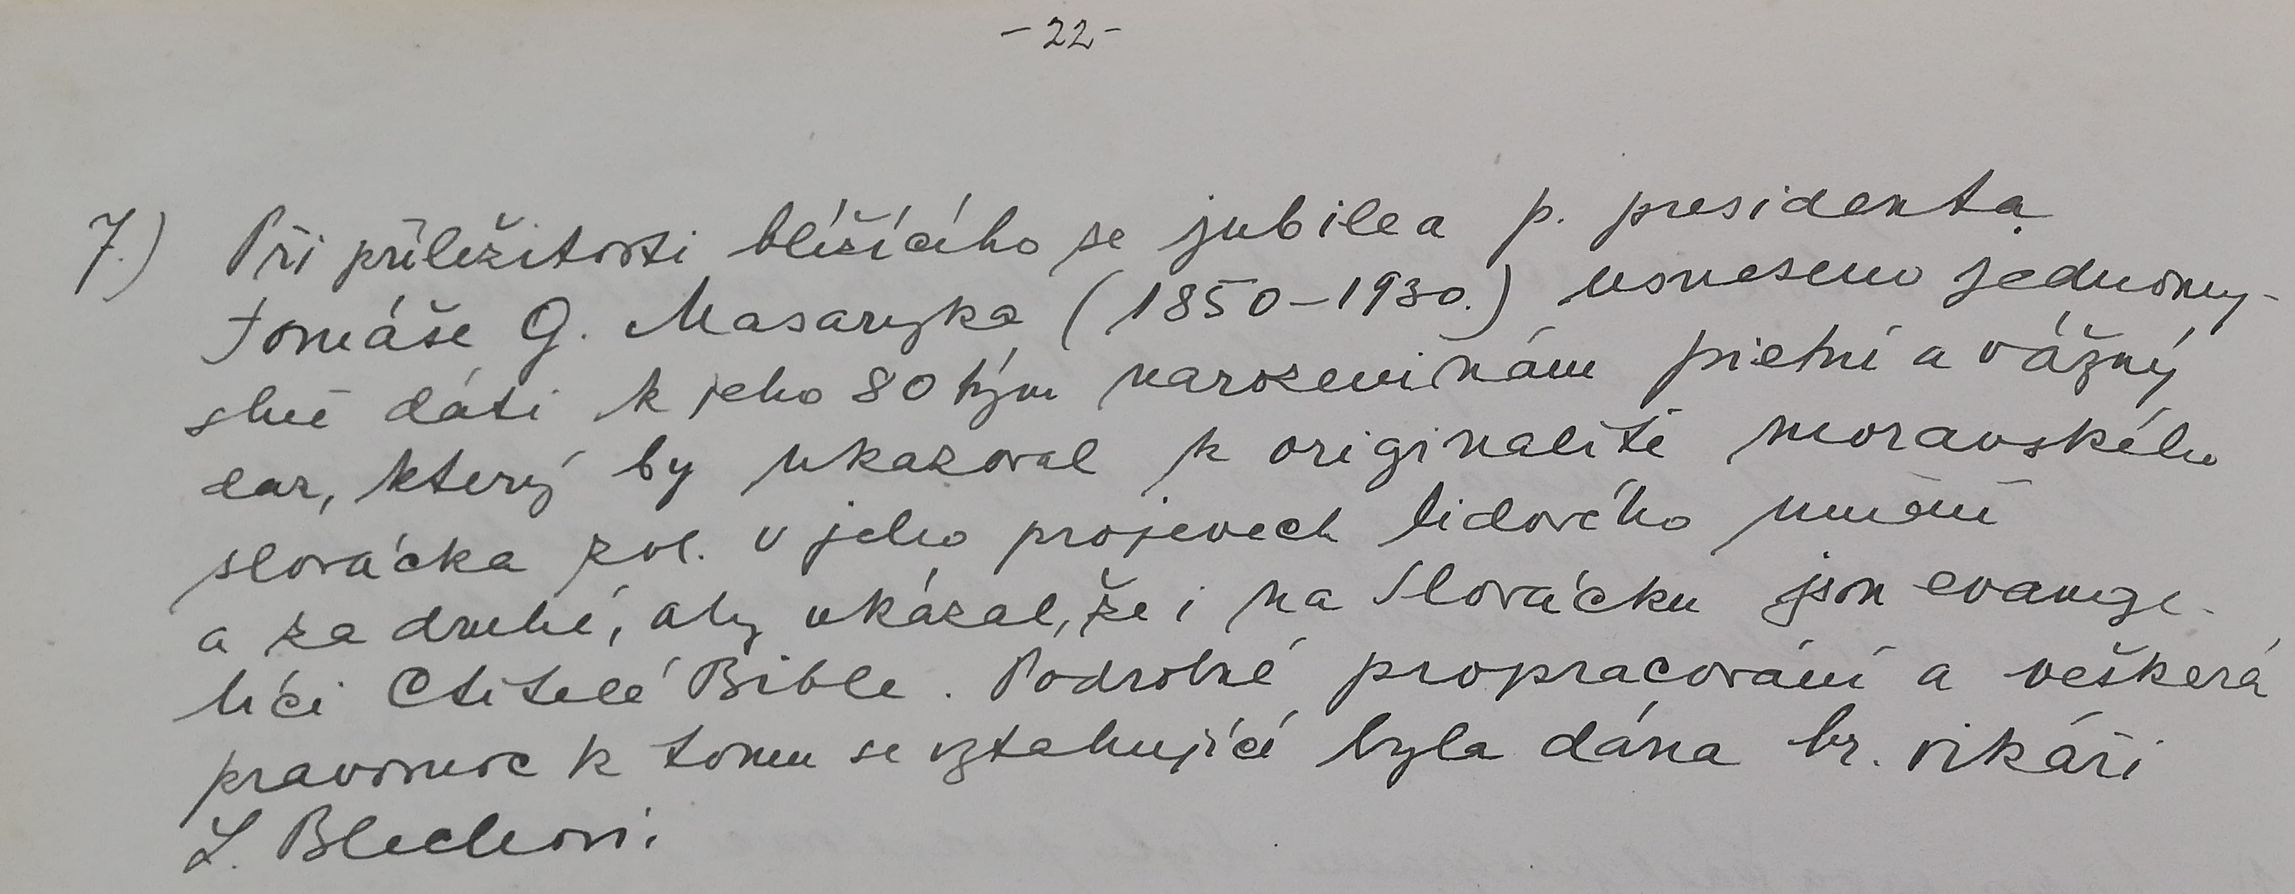 -22-
7.) Při příležitosti blížícího se jubilea p. presidenta
Tomáše G. Masaryka (1850-1930.) usneseno jednomy-
slně dáti k jeho 80 tým narozeninám pietní a vážný
dar, který by ukazoval k originalitě moravského
slovácka zvl. v jeho projevech lidového umění
a za druhé, aby ukázal, že i na Slovácku jsou evange-
líci ctitelé Bible. Podrobné propracování a veškerá
pravomoc k tomu se vztahující byla dána br. vikáři
L. Blechovi.